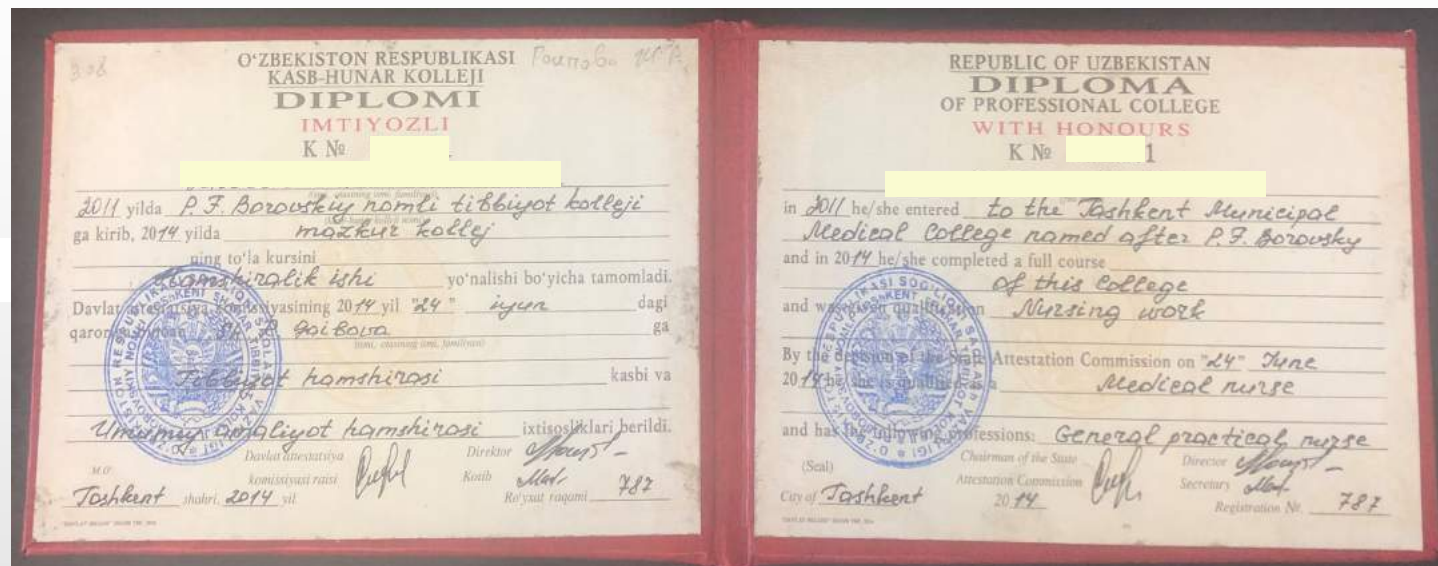 308
O‘ZBEKISTON RESPUBLIKASI
KASB-HUNAR KOLLEJI
DIPLOMI
IMTIYOZLI
K №
2011 yilda P. F. Borovskiy nomli tibbiyot kolleji
ga kirib, 2014 yilda mazkur kollej
ning to‘la kursini
Hamshiralik ishi yo‘nalishi bo‘yicha tamomladi.
Davlat attestatsiya komissiyasining 2014 yil "24" iyun dagi
ga
(ismi, otasining ismi, familiyasi)
Tibbiyot hamshirasi kasbi va
Umumiy amaliyot hamshirasi ixtisosliklari berildi.
M.O‘.
Davlat attestatsiya
komissiyasi raisi
Direktor
Kotib
Toshkent shahri, 2014 yil
Ro‘yxat raqami 787
REPUBLIC OF UZBEKISTAN
DIPLOMA
OF PROFESSIONAL COLLEGE
WITH HONOURS
K № 1
in 2011 he/she entered to the Tashkent Municipal
Medical College named after P. F. Borovsky
and in 2014 he/she completed a full course
of this College
and was given qualification Nursing work
By the decision of the State Attestation Commission on "24" June
2014 he/she is qualified as a Medical nurse
and has the following professions: General practical nurse
(Seal)
Chairman of the State
Attestation Commission
Director
Secretary
City of Toshkent 2014
Registration № 787